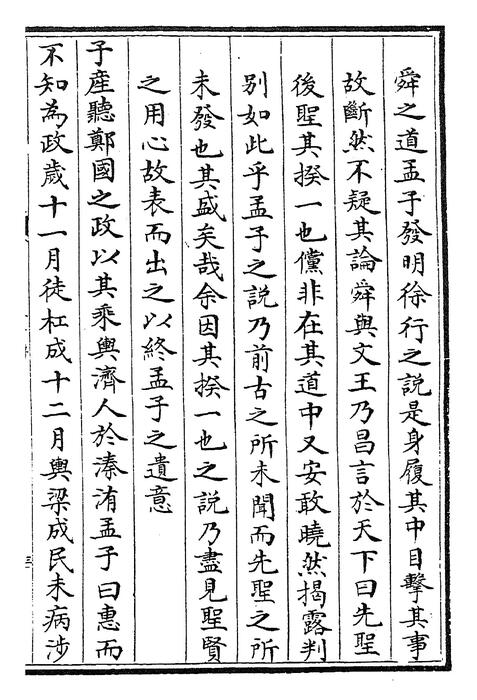 舜之道孟子發明徐行之説是身履其中目擊其事
故斷然不疑其論舜與文王乃昌言於天下曰先聖
後聖其揆一也儻非在其道中又安敢曉然揭露判
别如此乎孟子之説乃前古之所未聞而先聖之所
未發也其盛矣哉余因其揆一也之説乃盡見聖賢
之用心故表而出之以終孟子之遺意
子産聽鄭國之政以其乘輿濟人於溱洧孟子曰惠而
不知為政歲十一月徒杠成十二月輿梁成民未病涉